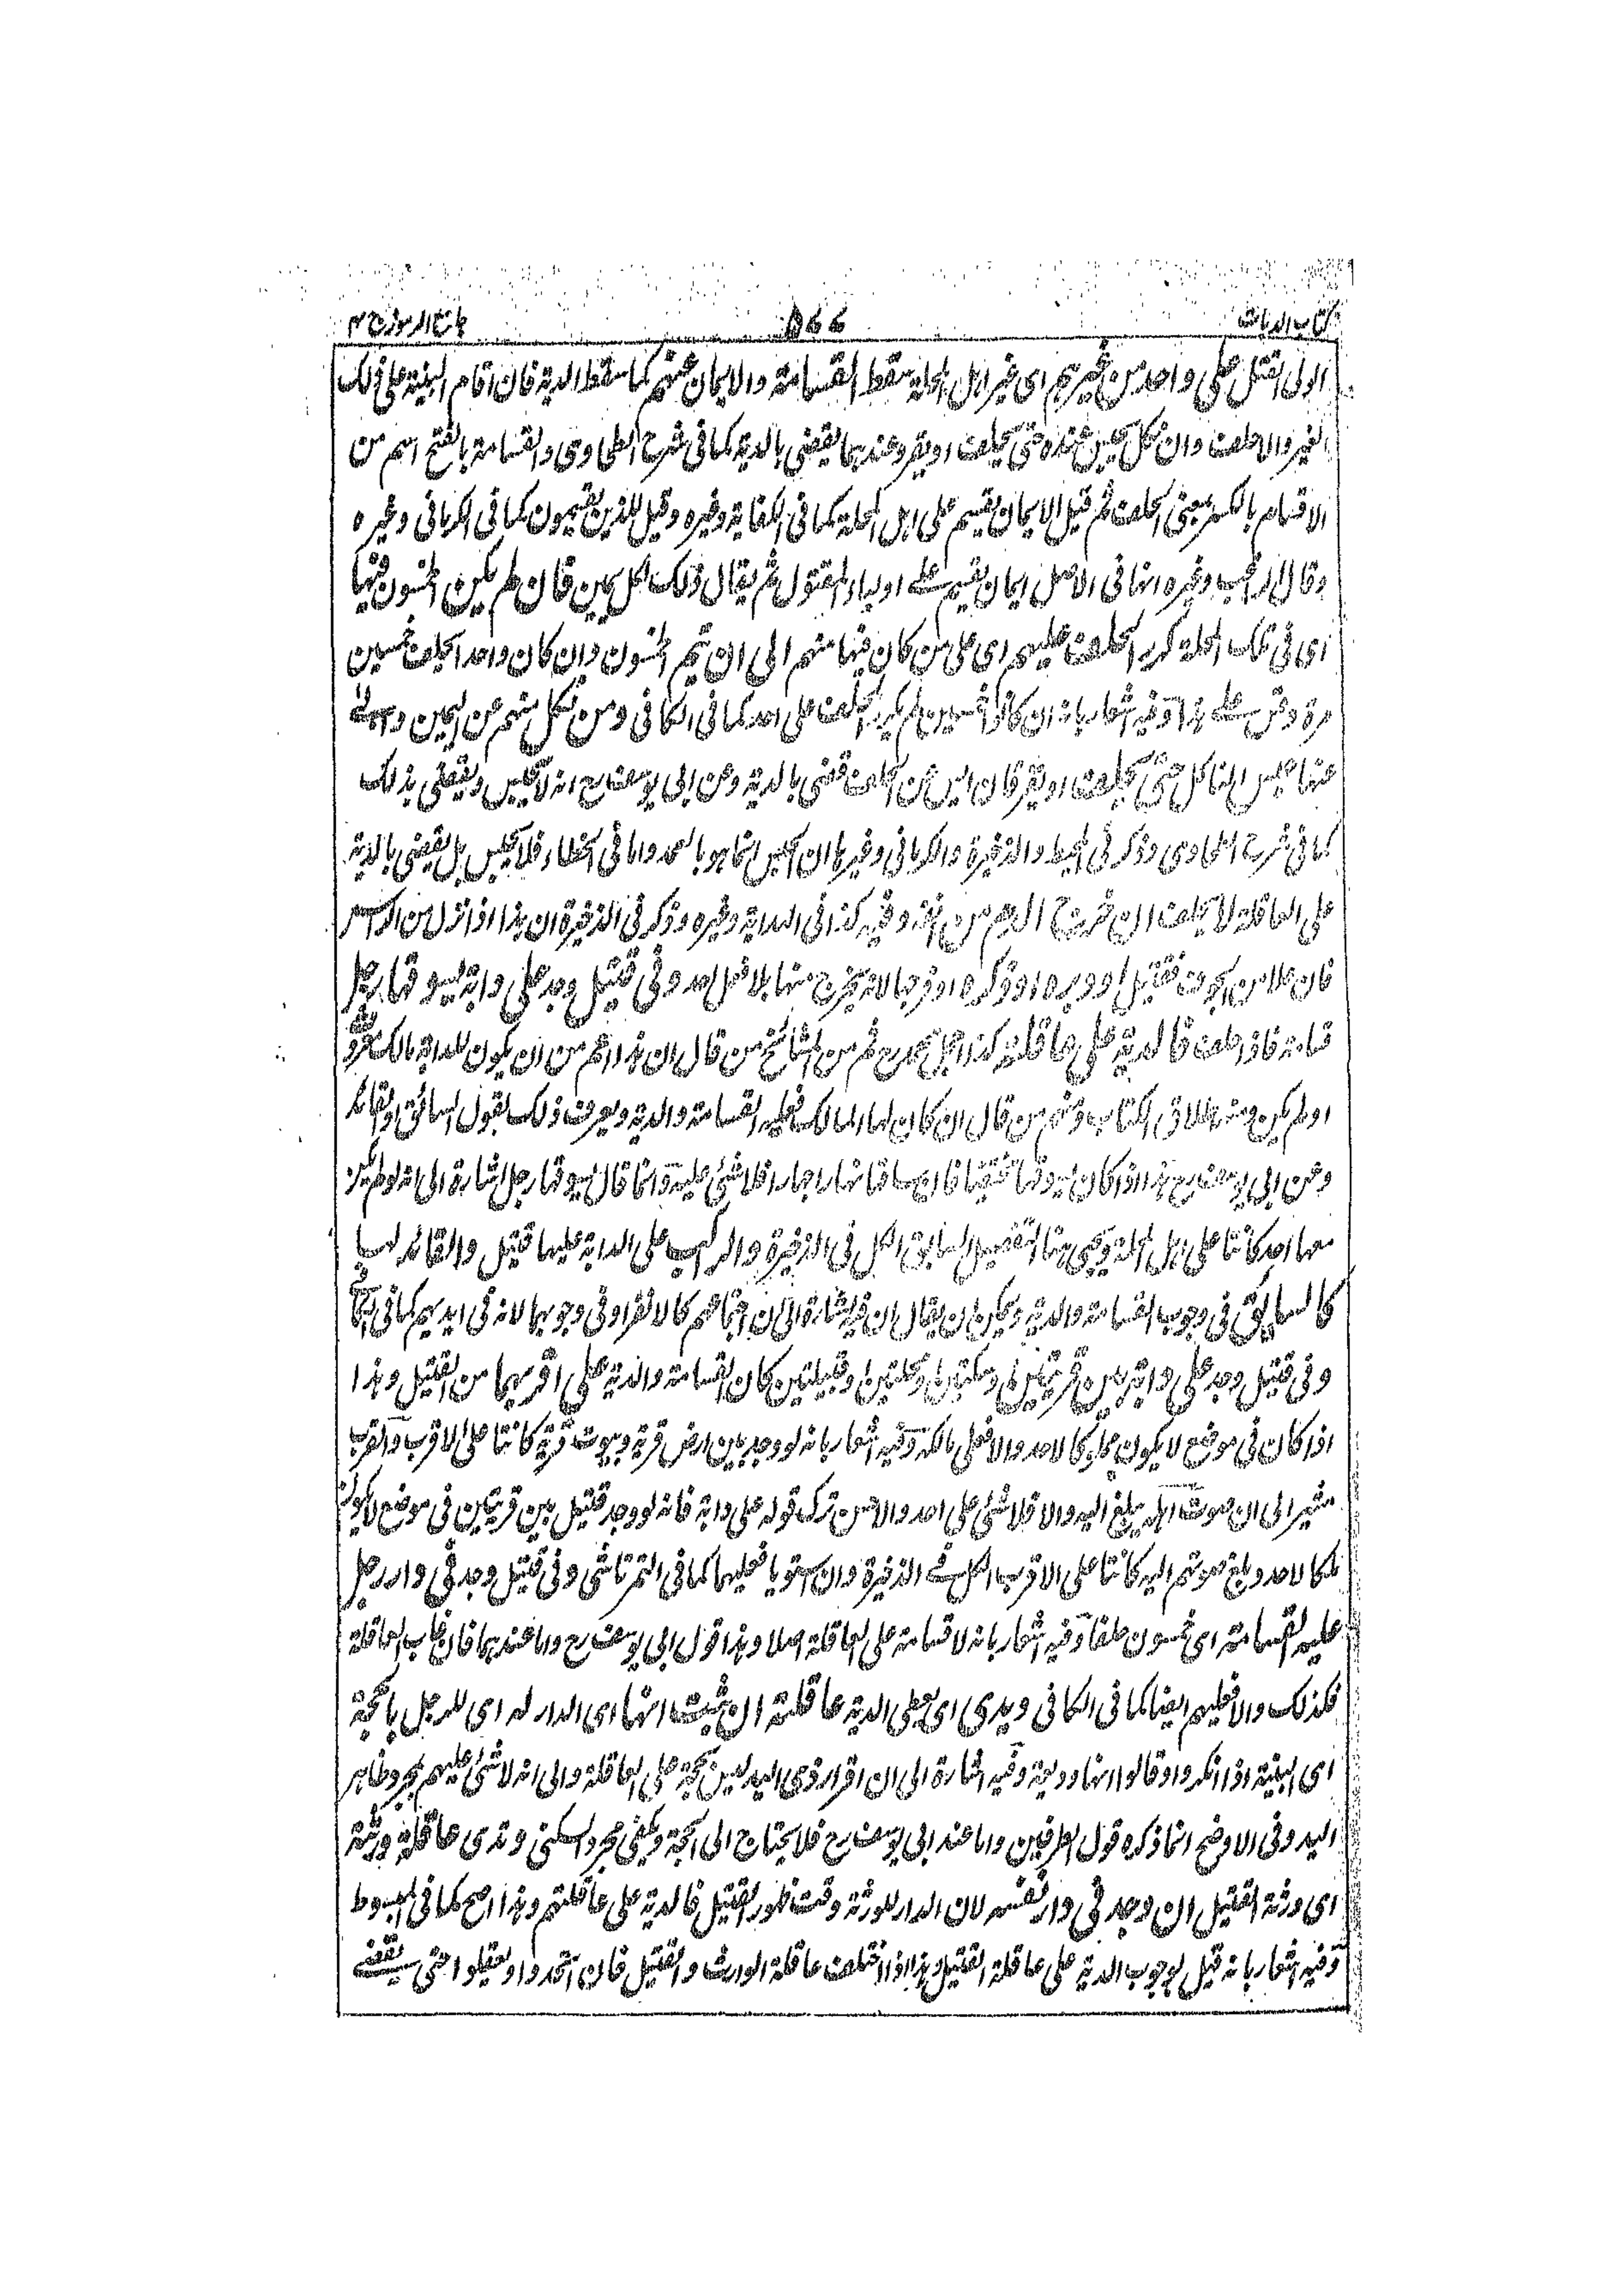 كتاب الديات ۵۶۶ جامع الرموز ج ۲
الولى القتل على واحد من غيرهم اى غير اهل المحلة سقط القسامة والايمان عنهم كما سقط الدية فان اقام البينة على ذلك
الغير والا حلف وان نكل حبس عنده حتى يحلف او يقر وعندهما يقضى بالدية كما فى شرح الطحاوى والقسامة بالفتح اسم من
الاقسام بالكسر بمعنى الحلف ثم قيل الايمان يقسم على اهل المحلة كما فى الكفاية وغيره وقيل للذين يقسمون كما فى الكرمانى وغيره
وقال الراغب وغيره انها فى الاصل ايمان يقسم على اولياء المقتول ثم يقال ذلك لكل يمين فان لم يكن الخمسون فيها
اى فى تلك المحلة كرر الحلف عليهم اى على من كان فيها منهم الى ان تتم الخمسون وان كان واحدا يحلف خمسين
مرة وقس على هذا وفيه اشعار بانه ان كانوا خمسين لم يكرر الحلف على احد كما فى الكافى ومن نكل منهم عن اليمين
عنها حبس الناكل حتى يحلف او يقر فان ايس عن الحلف قضى بالدية وعن ابى يوسف رح انه لا يحبس ويقضى بذلك
كما فى شرح الطحاوى وذكر فى المحيط والذخيرة والكرمانى وغيرها ان الحبس انما هو بالعمد واما فى الخطاء فلا يحبس بل يقضى بالدية
على العاقلة لا يحلف ان خرج الدم من انفه وفيه كذا فى الهداية وغيره وذكر فى الذخيرة ان هذا اذا نزل من الراس
فان علا من الجوف فقتيل او دبره او ذكره او فرجها لانه يخرج منها بلا فعل احد وفى قتيل وجد على دابة يسوقها رجل
قسامة فاذا حلف فالدية على عاقلته كذا اجمل محمد رح ثم من المشائخ من قال ان هذا اعم من ان يكون للدابة مالك معروف
او لم يكن ومنه اطلاق الكتاب ومنهم من قال ان كان لها مالك فعليه القسامة والدية ويعرف ذلك بقول السائق او القائد
وعن ابى يوسف رح هذا اذا كان يسوقها مختفيا فان ساقها نهارا جهارا فلا شئ عليه وانما قال يسوقها رجل اشارة الى انه لو لم يكن
معها احد كانتا على اهل المحلة ويجئ هنا التفصيل السابق الكل فى الذخيرة والراكب على الدابة عليها قتيل والقائد لها
كالسائق فى وجوب القسامة والدية ويمكن ان يقال ان فيه اشارة الى ان اجتماعهم كالانفراد فى وجوبهما لانه فى ايديهم كما فى
وفى قتيل وجد على دابة بين قريتين او سكتين او محلتين او قبيلتين كان القسامة والدية على اقربهما من القتيل وهذا
اذا كان فى موضع لا يكون مملوكا لاحد والا فعلى مالكه وفيه اشعار بانه لو وجد بين ارض قرية وبيوت قرية كانتا على الاقرب والقرب
مشير الى ان صوت اهله يبلغ اليه والا فلا شئ على احد والاحسن ترك قوله على دابة فانه لو وجد قتيل بين قريتين فى موضع لا يكون
ملكا لاحد وبلغ صوتهم اليه كانتا على الاقرب الكل فى الذخيرة وان استويا فعليهما كما فى التمرتاشى وفى قتيل وجد فى دار رجل
عليه القسامة اى خمسون حلفا وفيه اشعار بانه لا قسامة على العاقلة اصلا وهذا قول ابى يوسف رح واما عندهما فان غاب العاقلة
فكذلك والا فعليهم ايضا كما فى الكافى ويدى اى يعطى الدية عاقلته ان ثبت انها اى الدار له اى للرجل بالحجة
اى البينة اذا انكروا وقالوا انها وديعة وفيه اشارة الى ان اقرار ذى اليد ليس بحجة على العاقلة والى انه لا شئ عليهم بمجرد ظاهر
اليد وفى الاوضح انما ذكره قول الطرفين واما عند ابى يوسف رح فلا يحتاج الى الحجة ويكفى مجرد السكنى وتدى عاقلة ورثته
اى ورثة القتيل ان وجد فى دار نفسه لان الدار للورثة وقت ظهور القتيل فالدية على عاقلتهم وهذا اصح كما فى المبسوط
وفيه اشعار بانه قيل بوجوب الدية على عاقلة القتيل وهذا اذا اختلف عاقلة الوارث والقتيل فان اتحدوا يعقلوا حتى يقضى